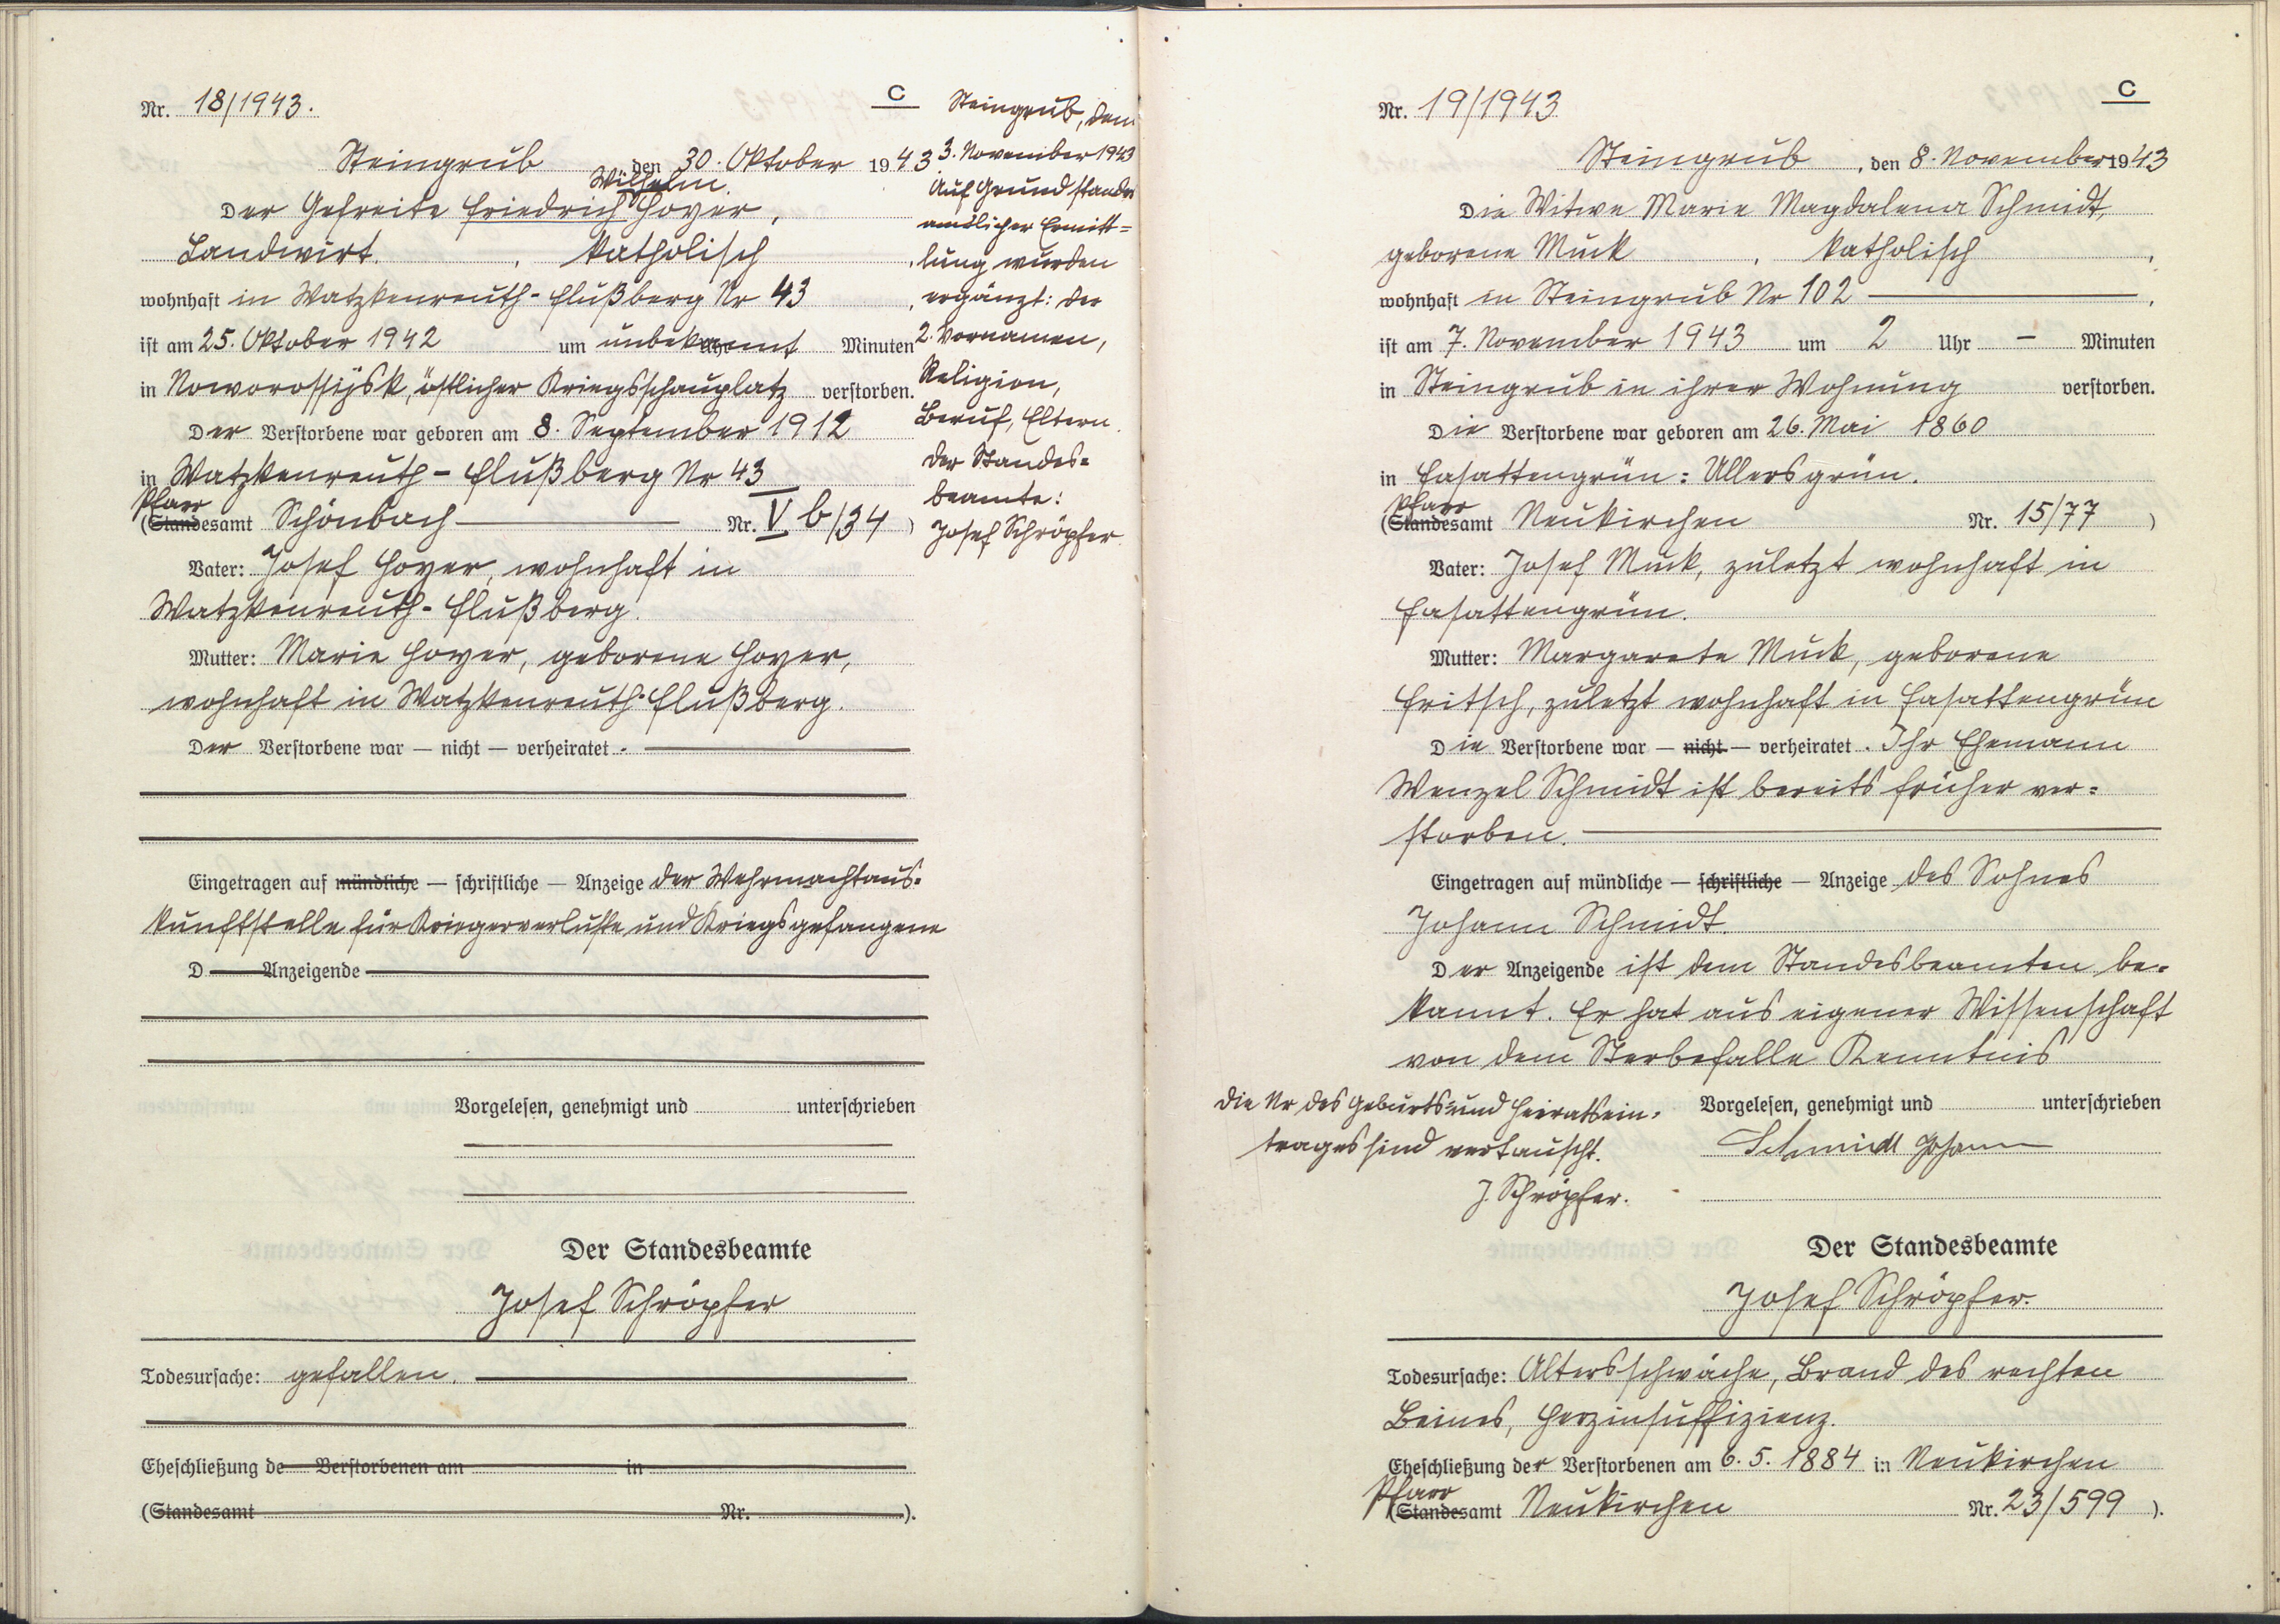 Nr. 18/1943.
C
Steingrub den 30. Oktober 1943
Wilhelm
Der Gefreite Friedrich Hoyer,
Landwirt, katholisch,
wohnhaft in Watzkenreuth-Flußberg Nr 43,
ist am 25. Oktober 1942 um unbekannt Uhr Minuten
in Noworossijsk, östlicher Kriegsschauplatz verstorben.
Der Verstorbene war geboren am 8. September 1912
in Watzkenreuth-Flußberg Nr 43
Pfarr
(Standesamt Schönbach Nr. V b/34)
Vater: Josef Hoyer, wohnhaft in
Watzkenreuth-Flußberg.
Mutter: Marie Hoyer, geborene Hoyer,
wohnhaft in Watzkenreuth-Flußberg.
Der Verstorbene war — nicht — verheiratet.
Eingetragen auf mündliche — schriftliche — Anzeige der Wehrmachtaus-
kunftstelle für Kriegerverluste und Kriegsgefangene
D Anzeigende
Vorgelesen, genehmigt und unterschrieben
Der Standesbeamte
Josef Schröpfer
Todesursache: gefallen.
Eheschließung de Verstorbenen am in
(Standesamt Nr. ).
Steingrub, den
3. November 1943
Auf Grund standes
amtlicher Ermitt=
lung wurden
ergänzt: der
2. Vornamen,
Religion,
Beruf, Eltern.
Der Standes=
beamte:
Josef Schröpfer
Nr. 19/1943
C
Steingrub, den 8. November 1943
Die Witwe Marie Magdalena Schmidt,
geborene Muck, katholisch,
wohnhaft in Steingrub Nr 102,
ist am 7. November 1943 um 2 Uhr – Minuten
in Steingrub in ihrer Wohnung verstorben.
Die Verstorbene war geboren am 26. Mai 1860
in Fasattengrün=Ullersgrün.
Pfarr
(Standesamt Neukirchen Nr. 15/77)
Vater: Josef Muck, zuletzt wohnhaft in
Fasattengrün.
Mutter: Margarete Muck, geborene
Fritsch, zuletzt wohnhaft in Fasattengrün
Die Verstorbene war — nicht — verheiratet. Ihr Ehemann
Wenzel Schmidt ist bereits früher ver=
storben.
Eingetragen auf mündliche — schriftliche — Anzeige des Sohnes
Johann Schmidt.
Der Anzeigende ist dem Standesbeamten be=
kannt. Er hat aus eigener Wissenschaft
von dem Sterbefalle Kenntnis
Die Nr des Geburts= und Heiratsein=
trages sind vertauscht.
J. Schröpfer.
Vorgelesen, genehmigt und unterschrieben
Schmidt Johann
Der Standesbeamte
Josef Schröpfer.
Todesursache: Altersschwäche, Brand des rechten
Beines, Herzinsuffizienz.
Eheschließung der Verstorbenen am 6. 5. 1884 in Neukirchen
Pfarr
(Standesamt Neukirchen Nr. 23/599).